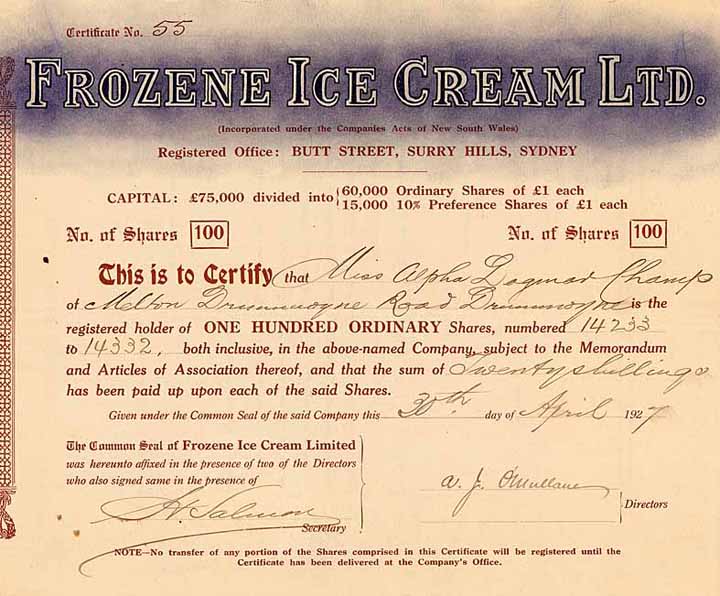 Certificate No. 55
FROZENE ICE CREAM LTD.
(Incorporated under the Companies Acts of New South Wales)
Registered Office: BUTT STREET, SURRY HILLS, SYDNEY
CAPITAL: £75,000 divided into { 60,000 Ordinary Shares of £1 each
15,000 10% Preference Shares of £1 each
No. of Shares 100 No. of Shares 100
This is to Certify that Miss Alpha Dagmar Champ
of Melton Drummoyne Road Drummoyne is the
registered holder of ONE HUNDRED ORDINARY Shares, numbered 14233
to 14332, both inclusive, in the above-named Company, subject to the Memorandum
and Articles of Association thereof, and that the sum of Twenty shillings
has been paid up upon each of the said Shares.
Given under the Common Seal of the said Company this 30th day of April 1927
The Common Seal of Frozene Ice Cream Limited
was hereunto affixed in the presence of two of the Directors
who also signed same in the presence of
A. J. O'Mullane
Directors
Salmon
Secretary
NOTE—No transfer of any portion of the Shares comprised in this Certificate will be registered until the
Certificate has been delivered at the Company's Office.